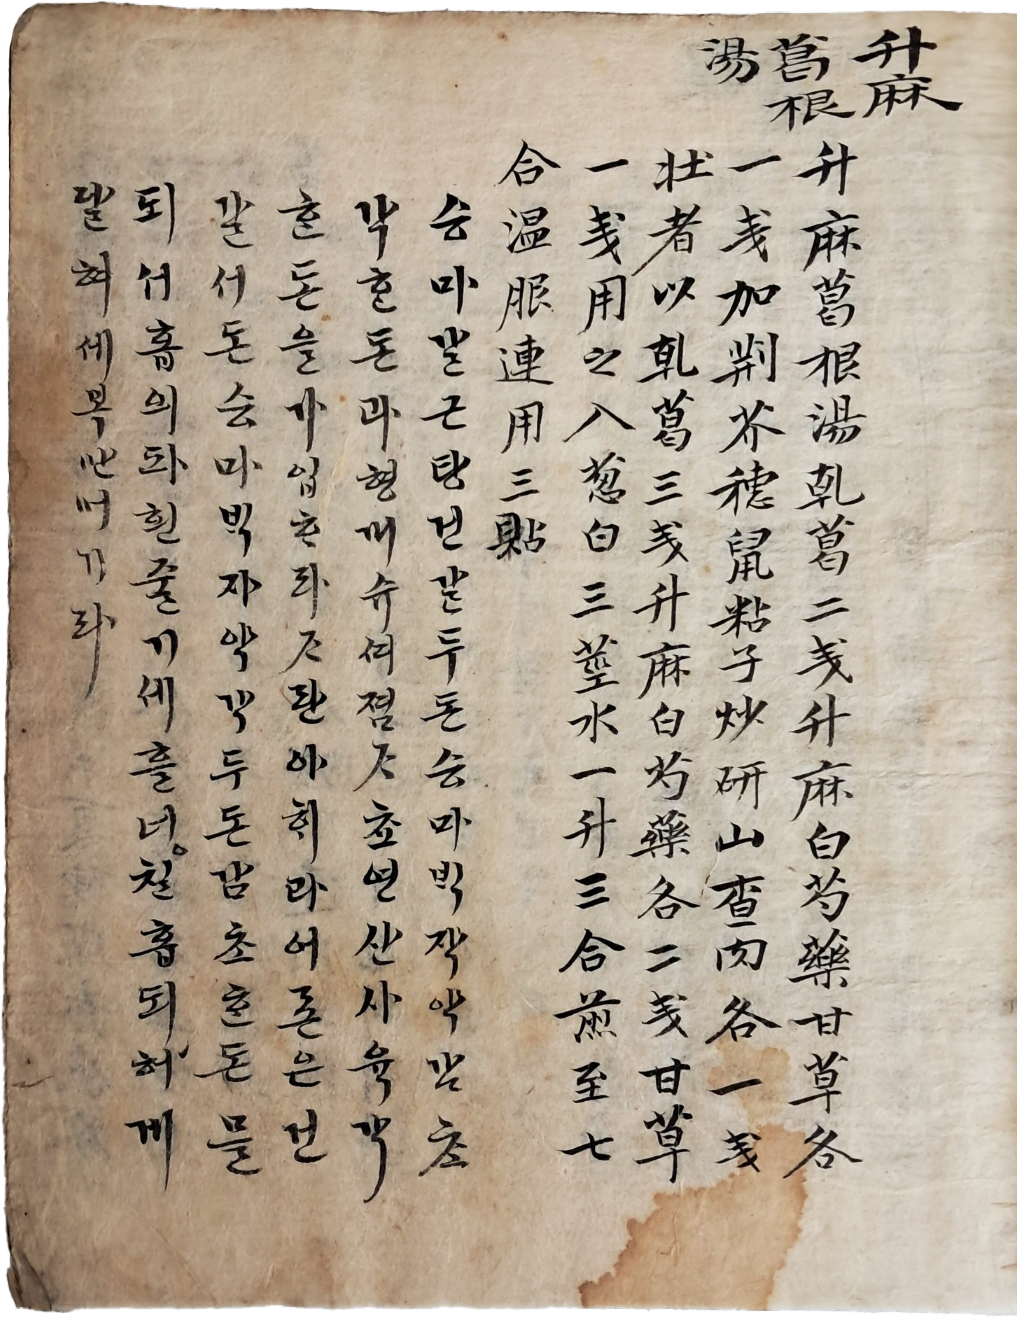 升麻
葛根
湯
升麻葛根湯乹葛二戔升麻白芍藥甘草各
一戔加荊芥穗鼠粘子炒研山査肉各一戔
壯者以乹葛三戔升麻白芍藥各二戔甘草
一戔用之入葱白三莖水一升三合煎至七
合温服連用三貼
승마갈근탕건갈두돈승마빅작약감초
각ᄒᆞᆫ돈과형개슈셔졈ᄌᆞ쵸연산사육각
ᄒᆞᆫ돈을가입ᄒᆞ라ᄌᆞ란아ᄒᆡ라어룬은건
갈서돈승마빅쟈약각두돈감초ᄒᆞᆫ돈물
되서홉의파흰줄기세흘녀칠홉되허게
달혀세복만머기라